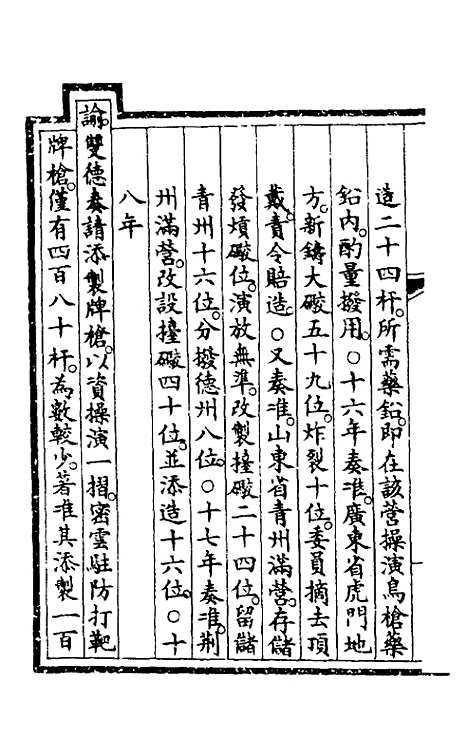 造二十四杆。所需藥鉛。即在該營操演鳥槍藥
鉛内。酌量撥用。○十六年奏准。廣東省虎門地
方。新鑄大礮五十九位。炸裂十位。委員摘去頂
戴。責令賠造。○又奏准。山東省青州滿營。存儲
發熕礮位。演放無準。改製擡礮二十四位。留儲
青州十六位。分撥德州八位。○十七年奏准。荆
州滿營。改設擡礮四十位。並添造十六位。○十
八年
諭。雙德奏請添製牌槍。以資操演一摺。密雲駐防打靶
牌槍。僅有四百八十杆。為數較少。著准其添製一百